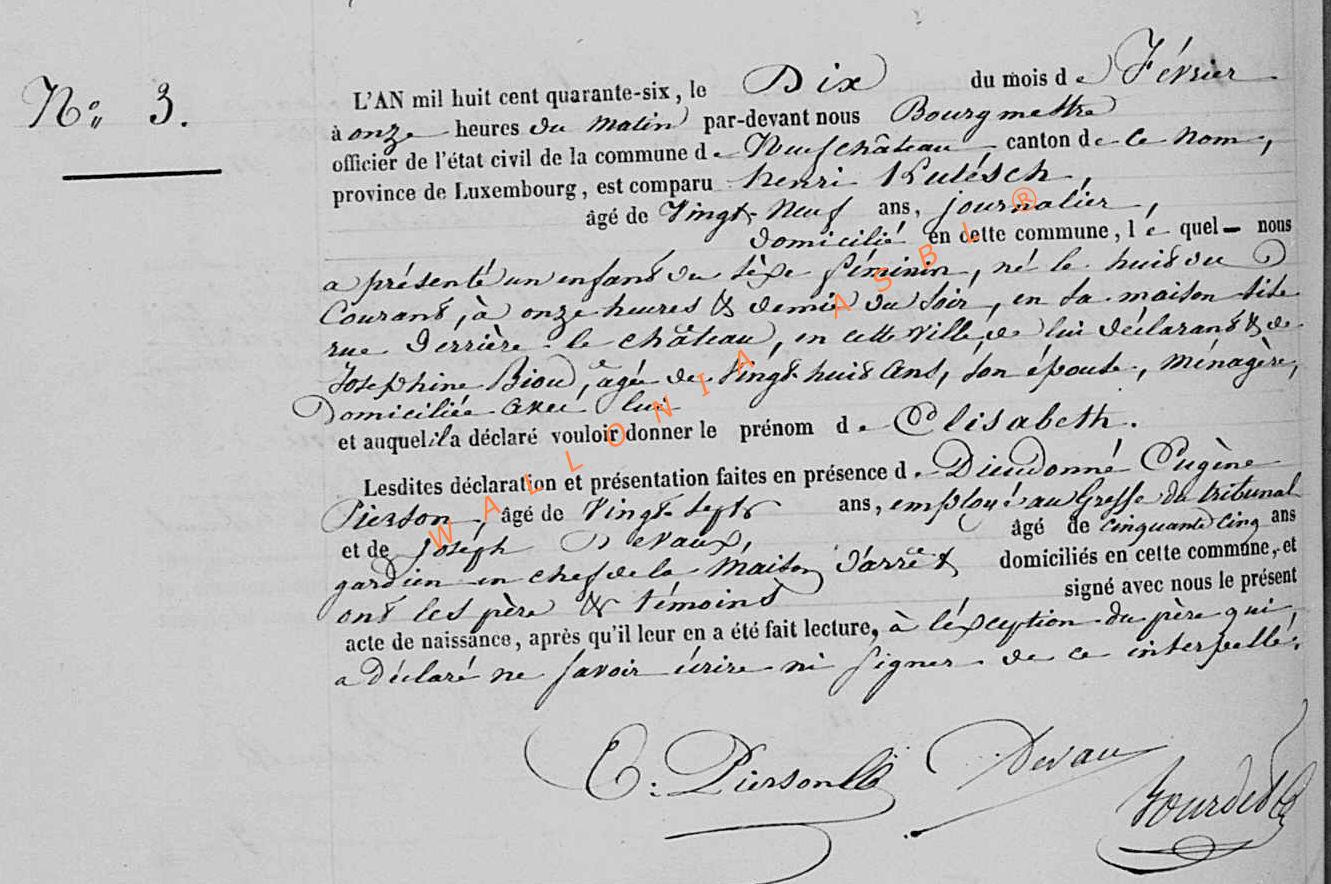 N° 3.
L'AN mil huit cent quarante-six, le Dix du mois de Février
à onze heures du matin par-devant nous Bourgmettre
officier de l'état civil de la commune de Neufchâteau, canton de ce nom,
province de Luxembourg, est comparu henri Kulésch,
âgé de Vingt-Neuf ans, journalier,
Domicilié en cette commune, lequel nous
a présenté un enfant du sèxe féminin, né le huit du
Courant, à onze heures & demie du soir, en sa maison sise
rue Derrière le château, en cette ville, de lui déclarant & de
Josephine Biou, agée de Vingt-huit ans, son épouse, ménagère,
Domiciliée avec lui
et auquel il a déclaré vouloir donner le prénom d' Elisabeth.
Lesdites déclaration et présentation faites en présence de Dieudonné Eugène
Pierson, âgé de Vingt-sept ans, employé au Greffe du tribunal
et de Joséph Devaux, âgé de cinquante cinq ans
gardien en chef de la Maison d'arrêt domiciliés en cette commune, et
ont les père & témoins signé avec nous le présent
acte de naissance, après qu'il leur en a été fait lecture, à l'éxception du père qui
a déclaré ne savoir écrire ni signer de ce interpellé.
E. Pierson Devau
WALLONIA ASBL ®